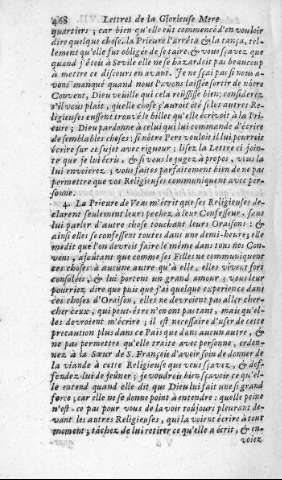 468 Lettres de la Glorieuse Mere
quartiers ; car bien qu'elle eût commencé d'en vouloir
dire quelque chose, la Prieure l'arrêta & la tança, tel-
lement qu'elle fut obligée de se taire, & vous sçavez que
quand j'étois à Sevile elle ne se hazardoit pas beaucoup
à mettre ce discours en avant. Je ne sçai pas si nous a-
vons manqué quand nous l'avons laissée sortir de nôtre
Convent, Dieu vueille qui cela réüssisse bien; considerez
s'il vous plaît, quelle chose ç'auroit été si les autres Re-
ligieuses eussent trouvé le billet qu'elle écrivoit à la Prieu-
re; Dieu pardonne à celui qui lui commande d'écrire
de semblables choses: si nôtre Pere vouloit il lui pourroit
écrire sur ce sujet avec rigueur ; lisez la Lettre ci join-
te que je lui écris, & si vous le jugez à propos, vous la
lui envoierez ; vous faites parfaitement bien de ne pas
permettre que vos Religieuses communiquent avec per-
sonne.
4. La Prieure de Veas m'écrit que ses Religieuses de-
clarent seulement leurs pechez à leur Confesseur, sans
lui parler d'autre chose touchant leurs Oraisons : &
ainsi elles se confessent toutes dans une demi-heure; elle
me dit que l'on devroit faire le même dans tous nos Con-
vens, ajoûtant que comme ses Filles ne communiquent
ces choses à aucune autre qu'à elle, elles vivent fort
consolées, & lui portent un grand amour ; vous leur
pourriez dire que puis que j'ai quelque experience dans
ces choses d'Oraison, elles ne devroient pas aller cher-
cher ceux, qui peut-être n'en ont pas tant, mais qu'el-
les devroient m'écrire ; il est necessaire d'user de cette
precaution plus dans ce Païs que dans aucun autre, & de
ne pas permettre qu'elle traite avec personne, ordon-
nez à la Sœur de S. François d'avoir soin de donner de
la viande à cette Religieuse que vous sçavez, & def-
fendez-lui de jeûner ; je voudrois bien sçavoir ce qu'el-
le entend quand elle dit que Dieu lui fait une si grand
force, car elle ne se donne point à entendre : quelle peine
n'est-ce pas pour vous de la voir toûjours pleurant de-
vant les autres Religieuses, qui la voient écrire à tout
moment ; tâchez de lui retirer ce qu'elle a écrit, & en-
voiez